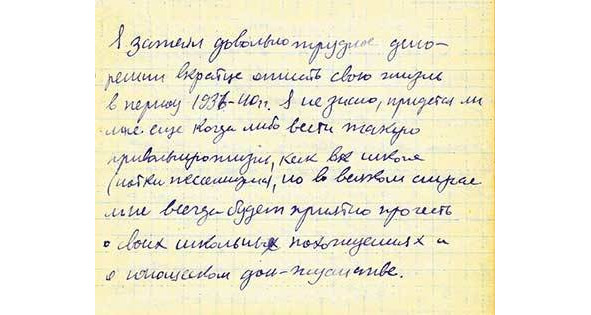 Я затеял довольно трудное дело –
решил вкратце описать свою жизнь
в период 1937-40гг. Я не знаю, придется ли
мне еще когда либо вести такую
привольную жизнь, как в школе
(нотки пессимизма), но во всяком случае
мне всегда будет приятно прочесть
о своих школьных похождениях и
о юношеском дон-жуанстве.